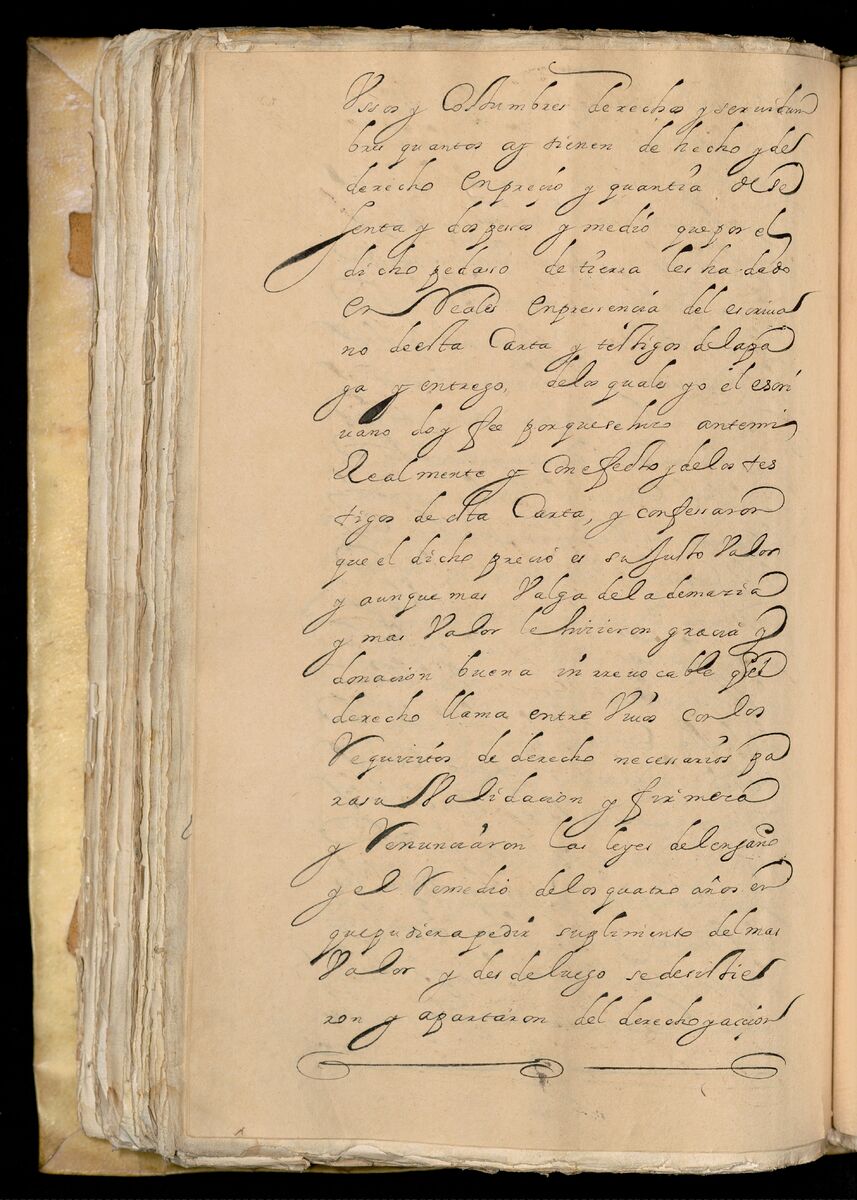 Vsos y Costumbres derechos y seruidum
bres quantos ay tienen de hecho y de
derecho en preçio y quantia de se
senta y dos pesos y medio que por el
dicho pedaso de tierra les ha dado
en Reales en pressencia del escriua
no de esta Carta y testigos de la pa
ga y entrego, de los quales yo el escri
uano doy fee porque se hiço antemi
Realmente y Con efecto y de los tes
tigos de esta Carta, y confessaron
que el dicho preçio es su Justo Valor
y aunque mas Valga de la demazia
y mas Valor le hiçieron gracia y
donaçion buena inrreuocable qͤ el
derecho llama entre Viuos con los
Requiçitos de derecho necessarios pa
ra su Validaçion y firmeça
y Renunciaron las leyes del engaño
y el Remedio de los quatro años en
que pudiera pedir suplimento del mas
Valor y desde luego se desistie
ron y apartaron del derecho y acçion